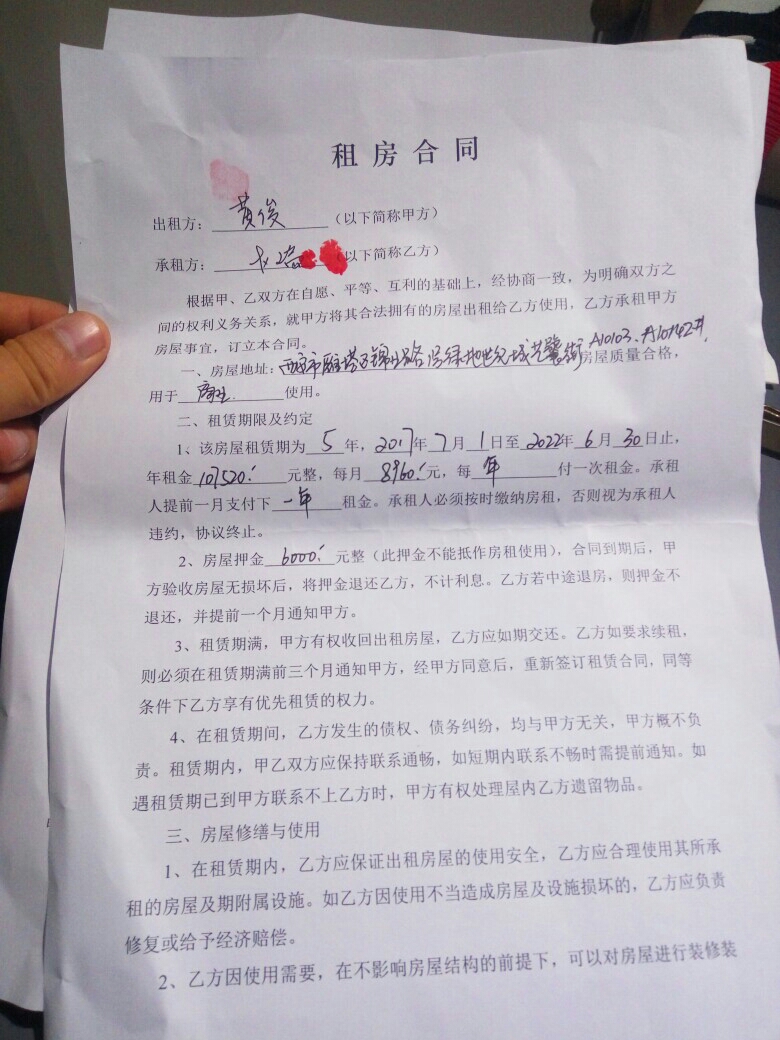 租房合同
出租方：黄俊（以下简称甲方）
承租方：（以下简称乙方）
根据甲、乙双方在自愿、平等、互利的基础上，经协商一致，为明确双方之
间的权利义务关系，就甲方将其合法拥有的房屋出租给乙方使用，乙方承租甲方
房屋事宜，订立本合同。
一、房屋地址：西安市雁塔区锦业路绿地世纪城 A10103、房屋质量合格，
用于商业使用。
二、租赁期限及约定
1、该房屋租赁期为5年，2017年7月1日至2022年6月30日止，
年租金107520.元整，每月8960.元，每年付一次租金。承租
人提前一月支付下一年租金。承租人必须按时缴纳房租，否则视为承租人
违约，协议终止。
2、房屋押金6000.元整（此押金不能抵作房租使用），合同到期后，甲
方验收房屋无损坏后，将押金退还乙方，不计利息。乙方若中途退房，则押金不
退还，并提前一个月通知甲方。
3、租赁期满，甲方有权收回出租房屋，乙方应如期交还。乙方如要求续租，
则必须在租赁期满前三个月通知甲方，经甲方同意后，重新签订租赁合同，同等
条件下乙方享有优先租赁的权力。
4、在租赁期间，乙方发生的债权、债务纠纷，均与甲方无关，甲方概不负
责。租赁期内，甲乙双方应保持联系通畅，如短期内联系不畅时需提前通知。如
遇租赁期已到甲方联系不上乙方时，甲方有权处理屋内乙方遗留物品。
三、房屋修缮与使用
1、在租赁期内，乙方应保证出租房屋的使用安全，乙方应合理使用其所承
租的房屋及期附属设施。如乙方因使用不当造成房屋及设施损坏的，乙方应负责
修复或给予经济赔偿。
2、乙方因使用需要，在不影响房屋结构的前提下，可以对房屋进行装修装